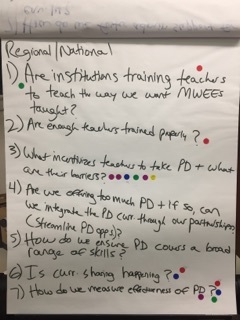 Regional/National
1) Are institutions training teachers
to teach the way we want MWEEs
taught?
2) Are enough teachers trained properly?
3) What incentivizes teachers to take PD + what
are their barriers?
4) Are we offering too much PD + if so, can
we integrate the PD curr. through our partnerships
(streamline PD opps)?
5) How do we ensure PD covers a broad
range of skills?
6) Is curr. sharing happening?
7) How do we measure effectiveness of PD?